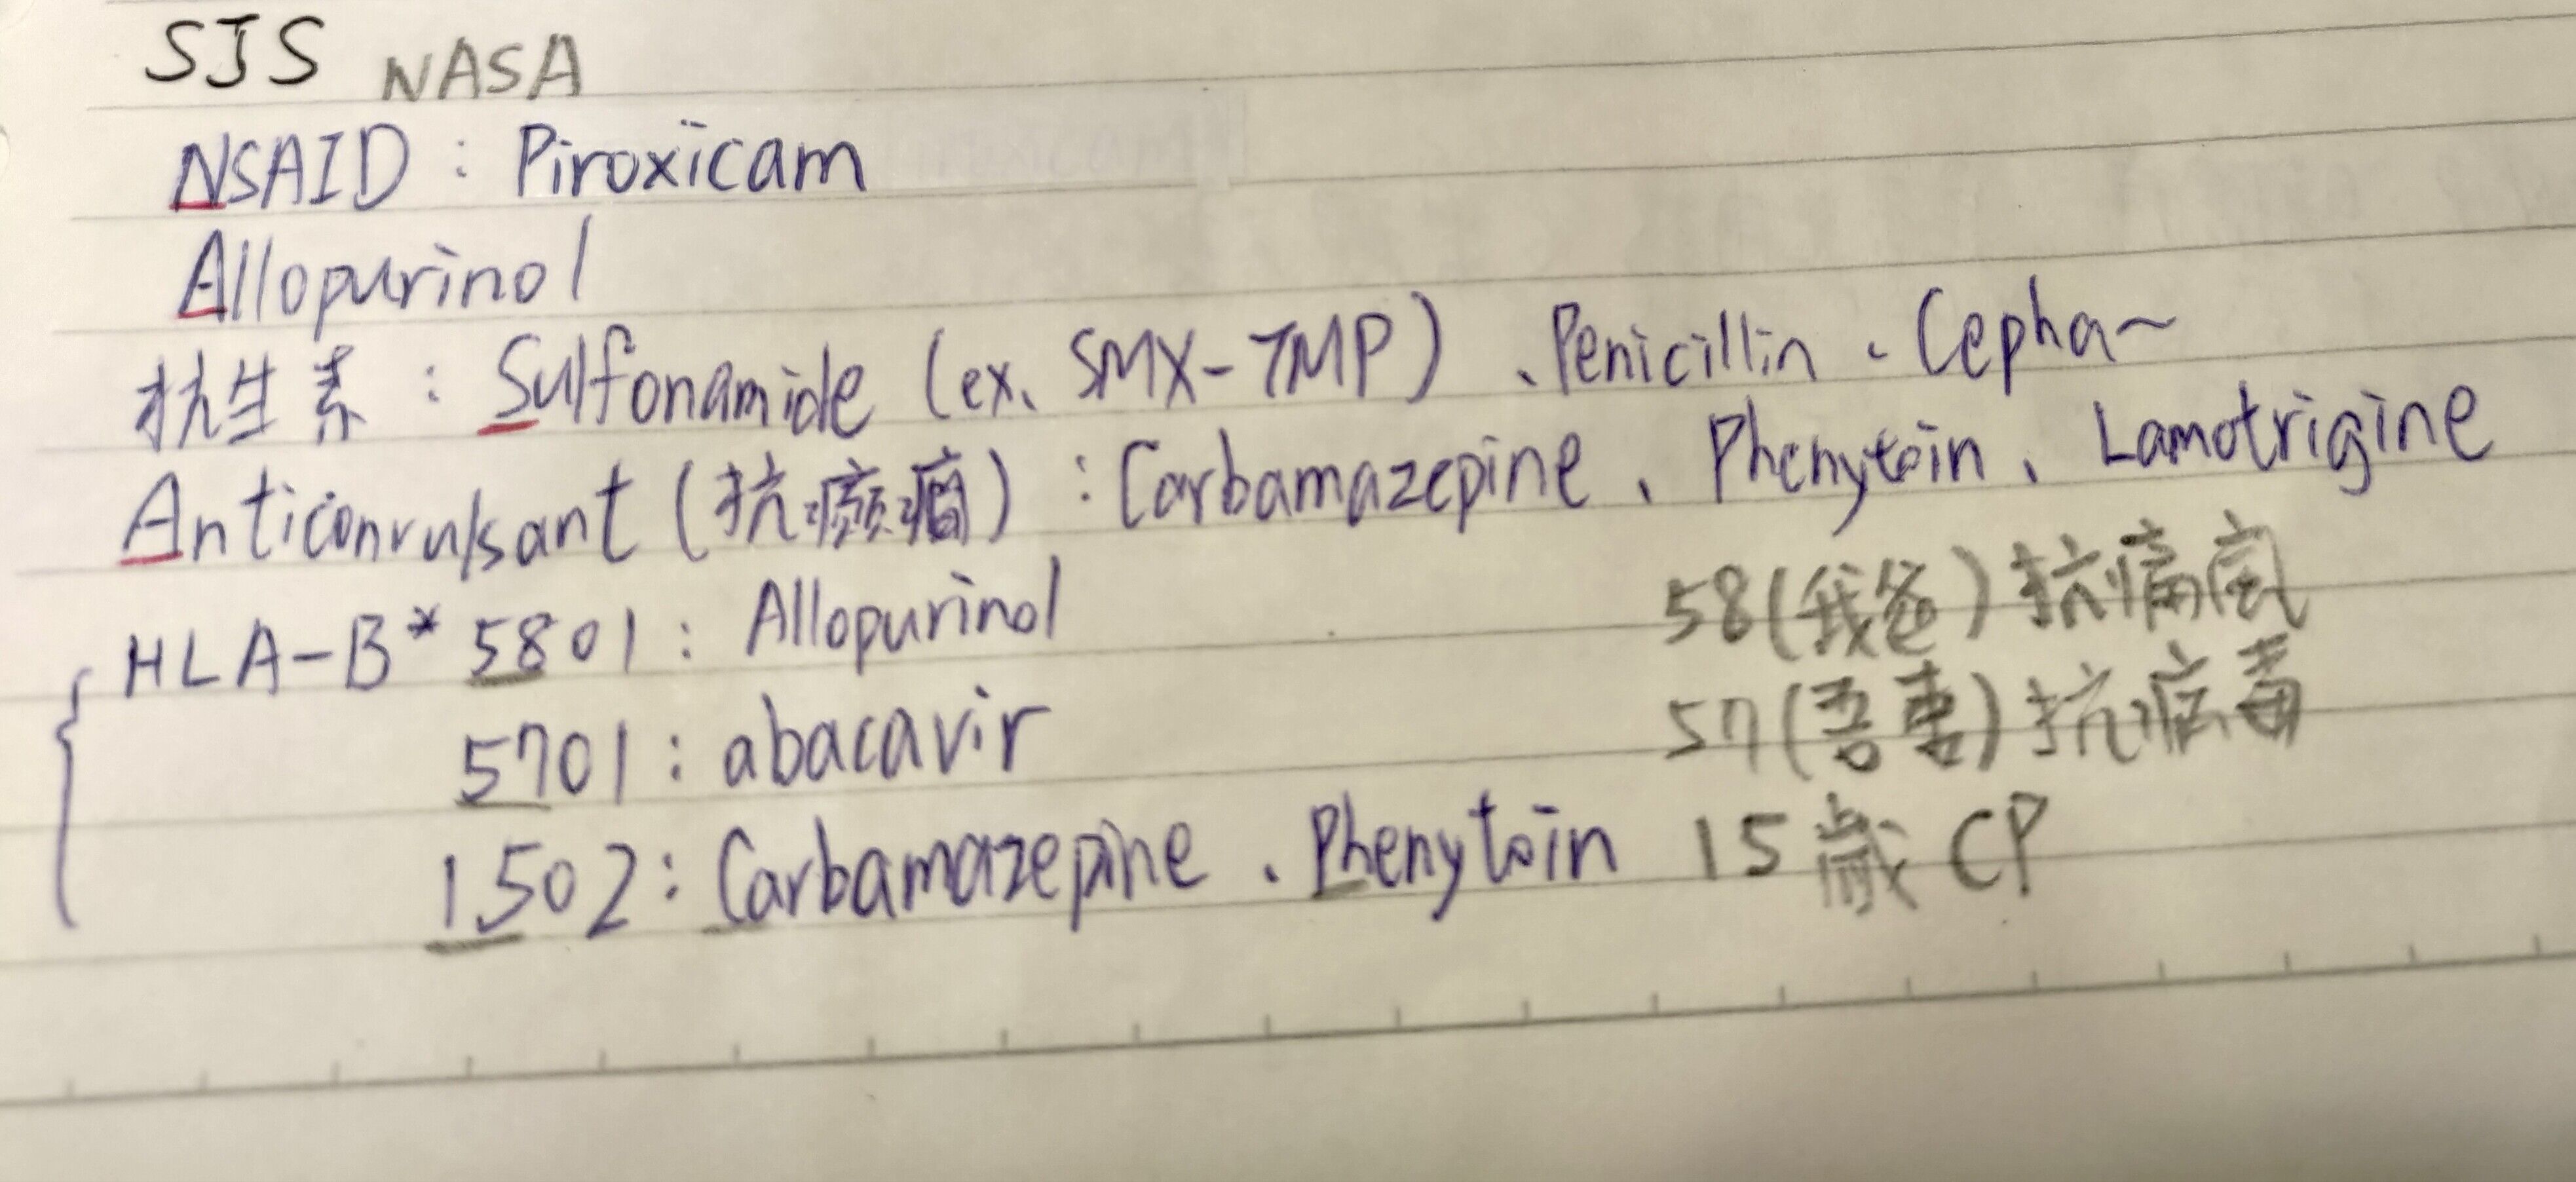 SJS NASA
NSAID : Piroxicam
Allopurinol
抗生素 : Sulfonamide (ex. SMX-TMP)、Penicillin、Cepha~
Anticonvulsant (抗癲癇) : Carbamazepine、Phenytoin、Lamotrigine
HLA-B* 5801 : Allopurinol 58(我爸)抗痛風
5701 : abacavir 57(吾妻)抗病毒
1502 : Carbamazepine、Phenytoin 15歲 CP